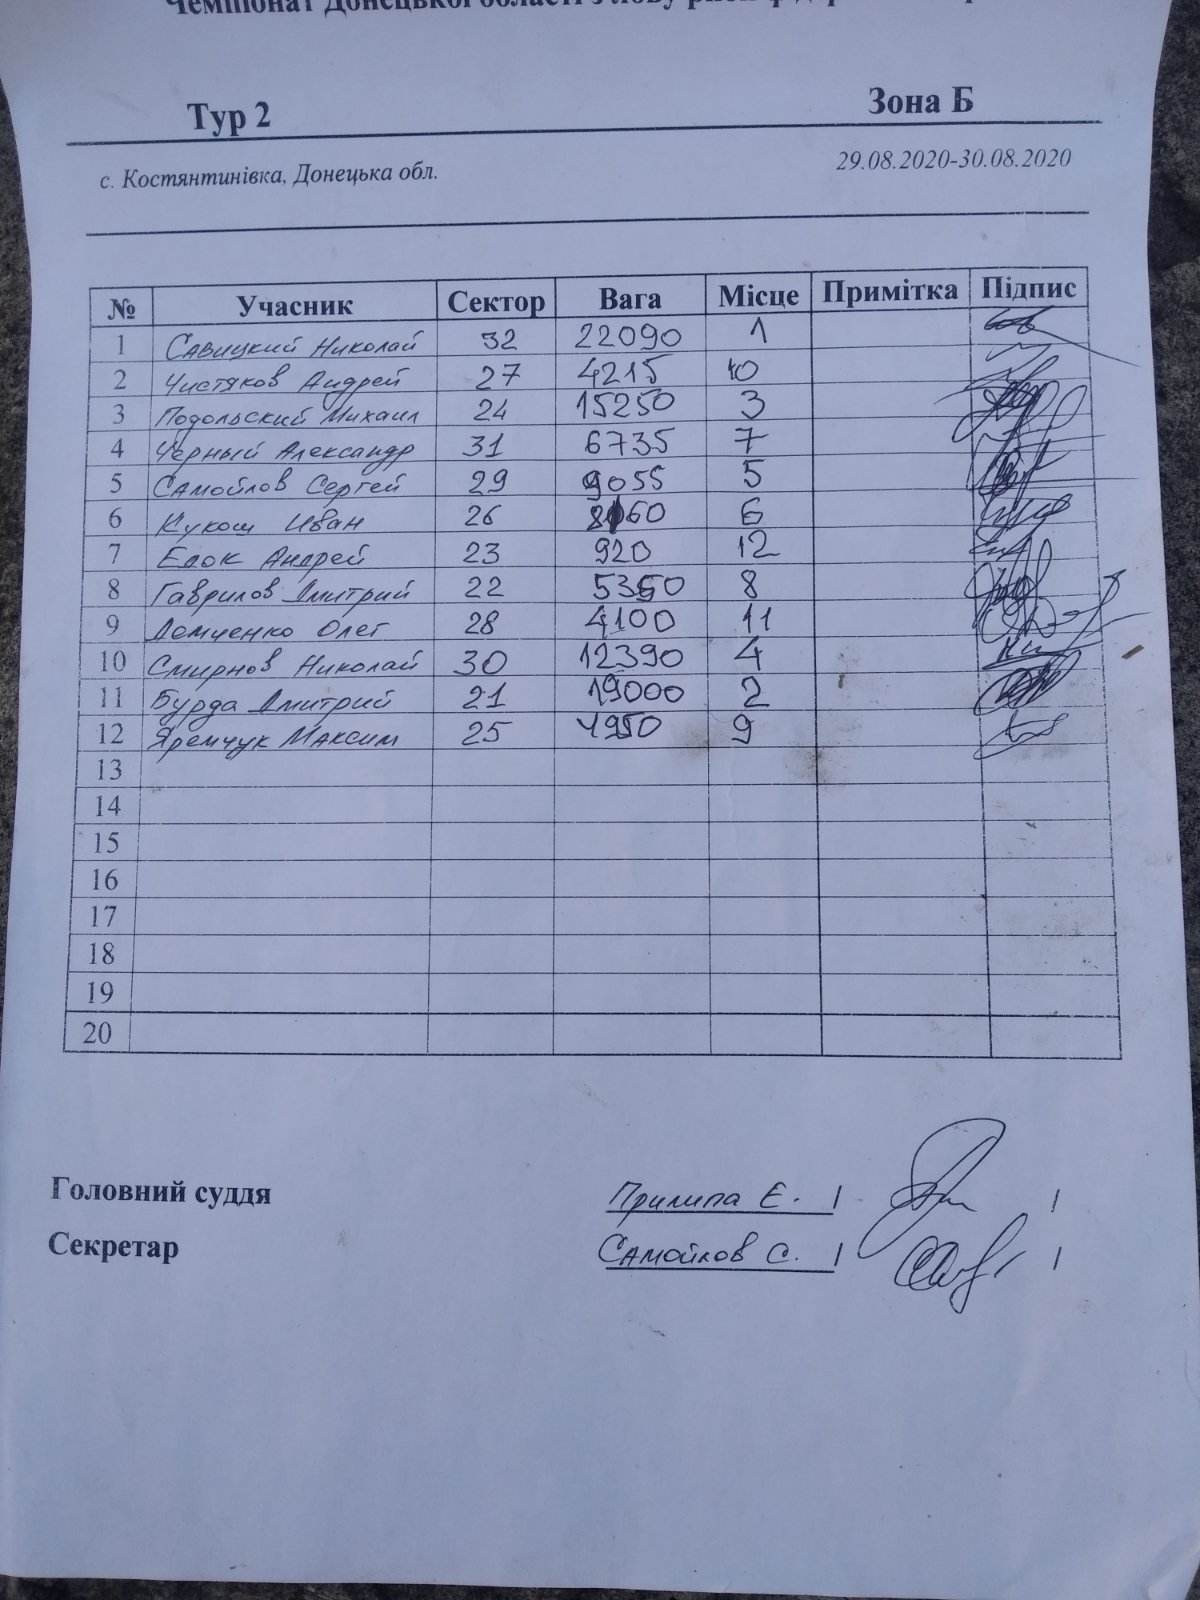 Чемпіонат Донецької області з лову риби
Тур 2 Зона Б
с. Костянтинівка, Донецька обл. 29.08.2020-30.08.2020
№ Учасник Сектор Вага Місце Примітка Підпис
1 Савицкий Николай 32 22090 1
2 Чистяков Андрей 27 4215 10
3 Подольский Михаил 24 15250 3
4 Черный Александр 31 6735 7
5 Самойлов Сергей 29 9055 5
6 Кукош Иван 26 8160 6
7 Елок Андрей 23 920 12
8 Гаврилов Дмитрий 22 5360 8
9 Демченко Олег 28 4100 11
10 Смирнов Николай 30 12390 4
11 Бурда Дмитрий 21 19000 2
12 Яремчук Максим 25 4950 9
13
14
15
16
17
18
19
20
Головний суддя Прилипа Є. / /
Секретар Самойлов С. / /